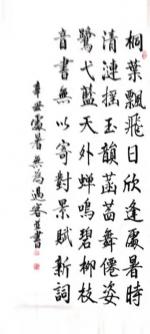 桐葉飄飛日欣逢處暑時
清漣搖玉韻菡萏舞僊姿
鷺弋藍天外蟬鳴碧柳枝
音書無以寄對景賦新詞
辛丑處暑無為過客並書